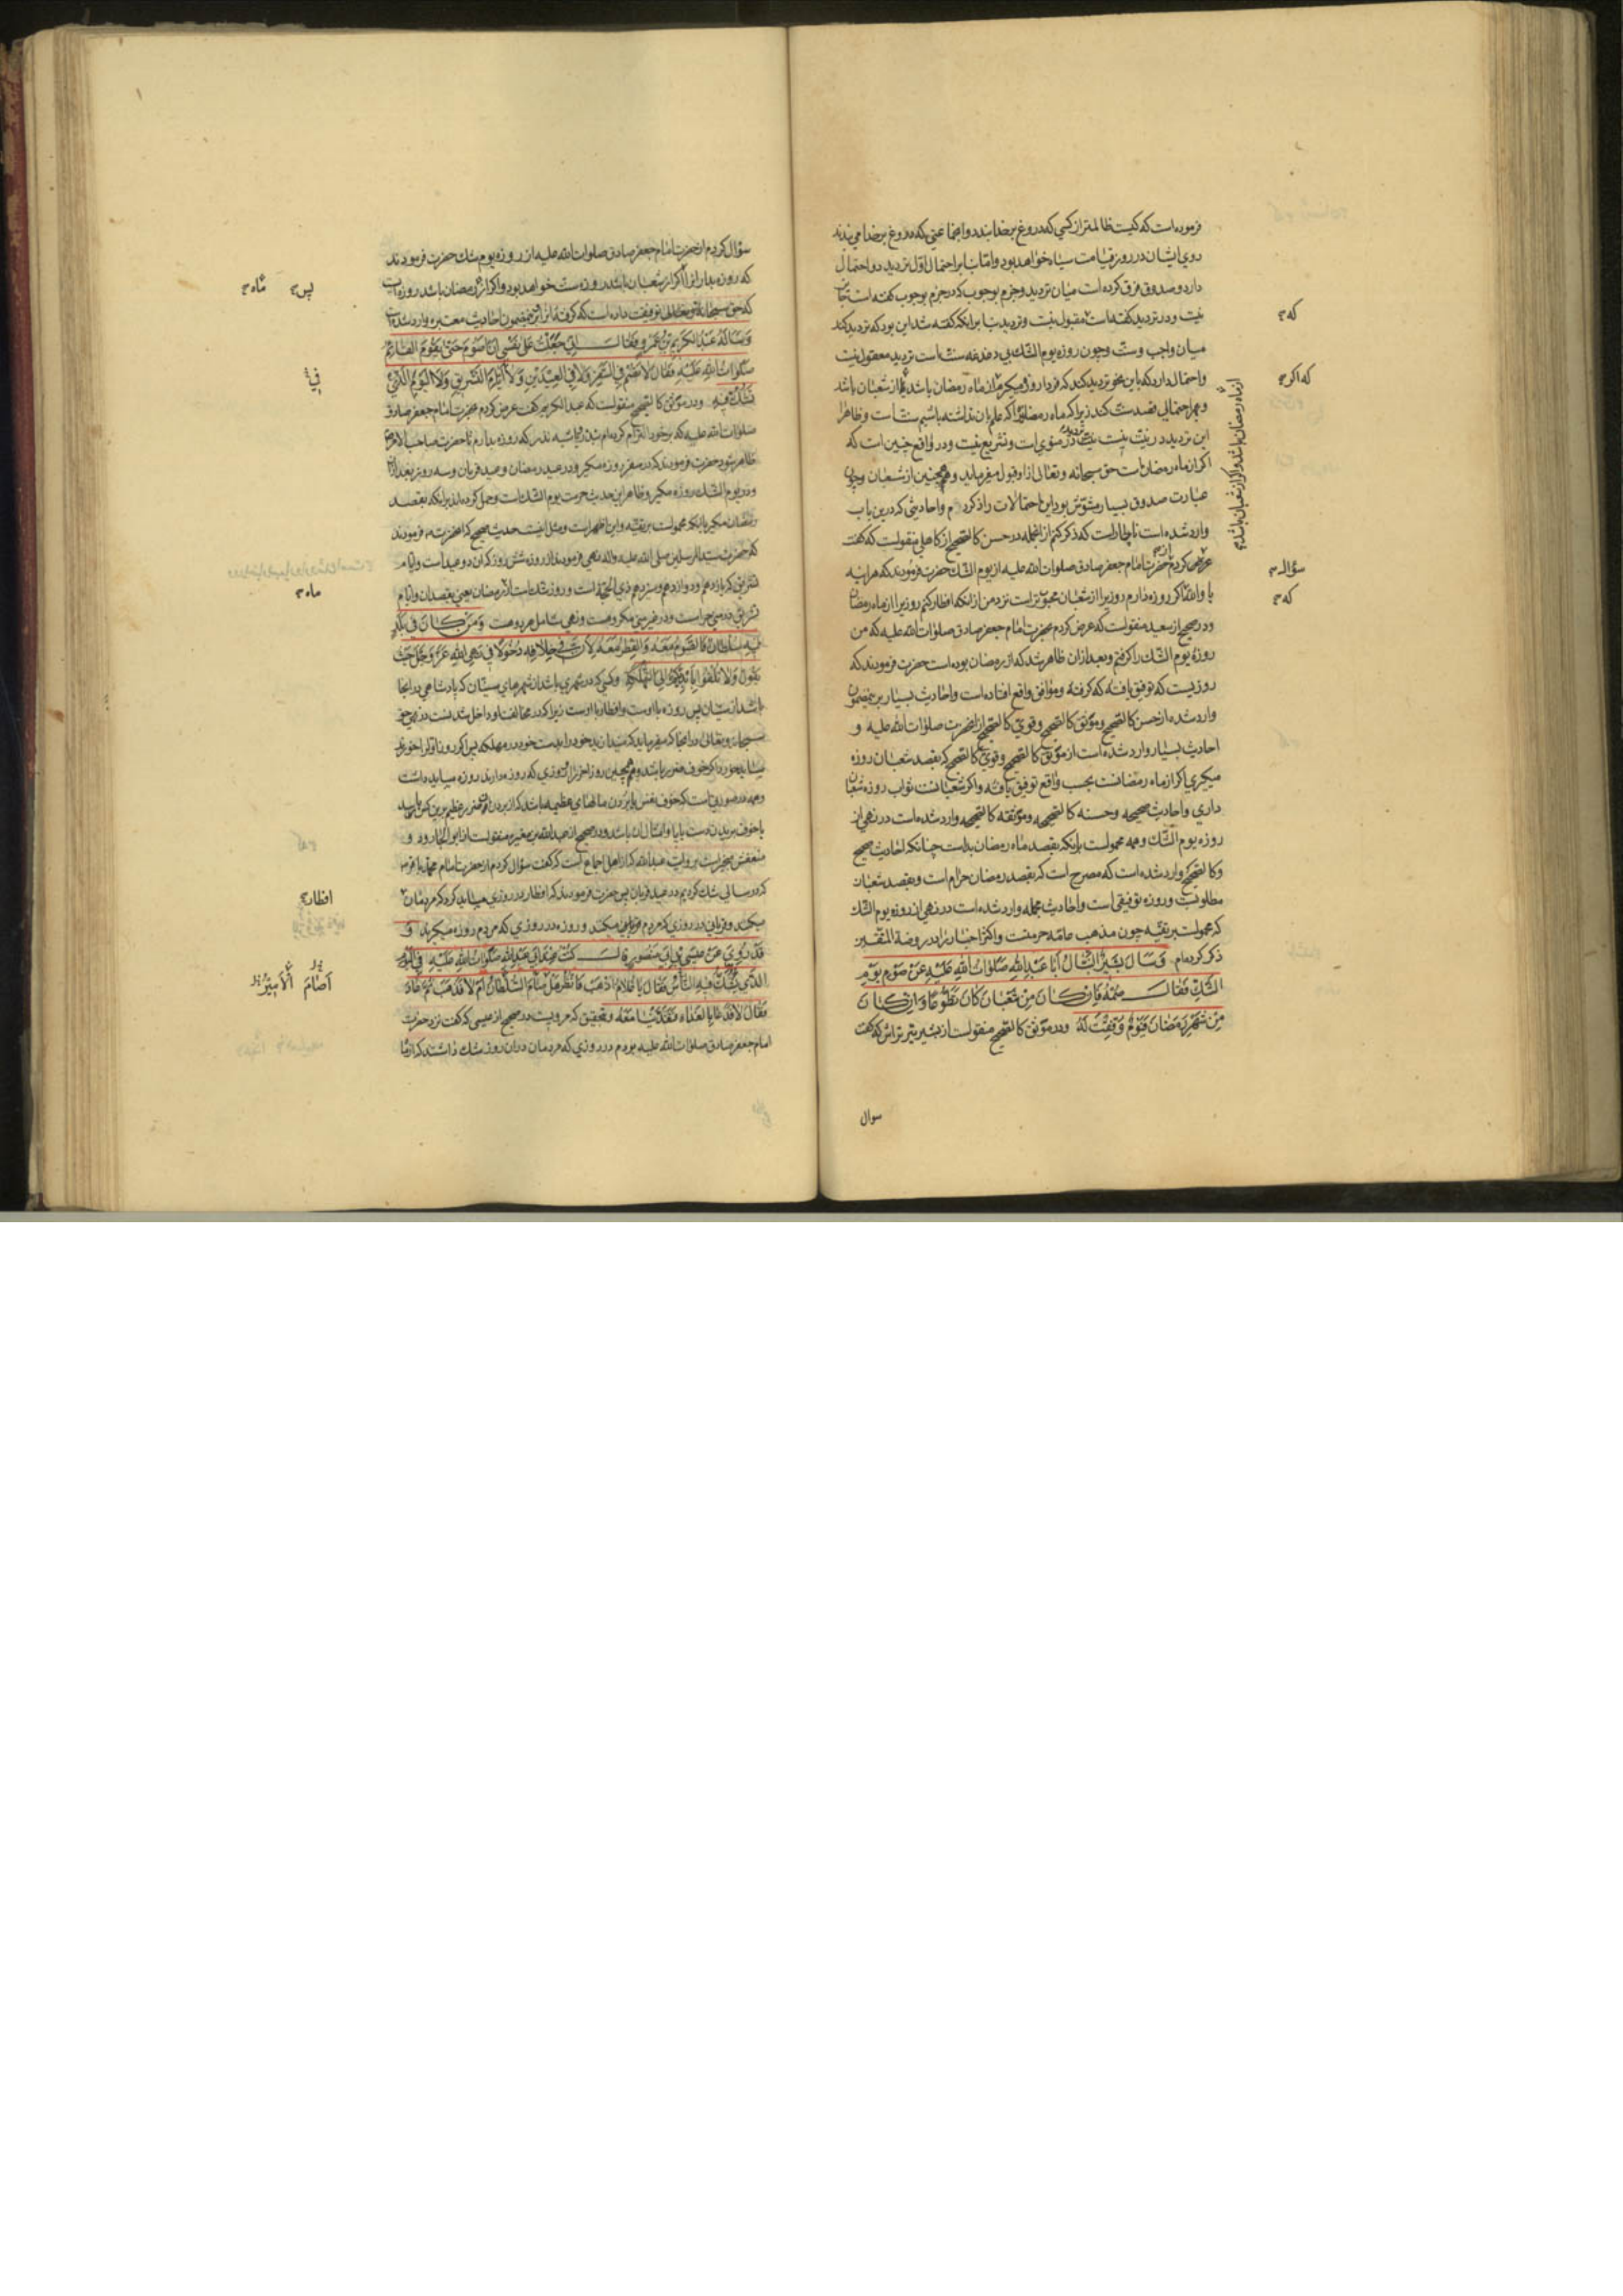 فرموده است که کیست ظالمتر از کسی که دروغ بر خدا بندد و اجماعتی که دروغ بر خدا می بندند
روی ایشان در روز قیامت سیاه خواهد بود و امّا بنا بر احتمال اوّل تردید دو احتمال
دارد و صدوق فرق کرده است میان تردید و جزم بوجوب که در جزم بوجوب گفته است
نیت و در تردید گفته است مقبول نیست و تردید بنا بر آنکه گفته شد این بود که تردید کند
میان واجب و سنّت و چون روزه یوم الشّک بی دغدغه سنّت است تردید معقول نیست
و احتمال دارد که باین نحو تردید کند که فردا روزه میکیرم از ماه رمضان باشد یا از شعبان باشد
این تردید در نیّت نیست در منوی است و تشریع نیست و در واقع چنین است که
اکر از ماه رمضان است حق سبحانه و تعالی از او قبول میفرماید و همچنین از شعبان و چون
عبارت صدوق بسیار مشوّش بود این احتمالات را ذکر کردم و احادیثی که درین باب
وارد شده است ناچار است که ذکر کنم از انجمله در حسن کالصّحیح از کاهلی منقولست که گفت
عرض کردم حضرت امام جعفر صادق صلوات الله علیه از یوم الشّک حضرت فرمودند که هر اینه
یا والله اکر روزه دارم روزیرا از شعبان محبوبتر است نزد من از انکه افطار کنم روزیرا از ماه رمضان
و در صحیح از سعید منقولست که عرض کردم بحضرت امام جعفر صادق صلوات الله علیه که من
روزهٔ یوم الشّک را کرفتم و بعد از ان ظاهر شد که از رمضان بوده است حضرت فرمودند که
روزیست که توفیق یافتهٔ که کرفتهٔ و موافق واقع افتاده است و احادیث بسیار برینمضمون
وارد شده از حسن کالصّحیح و موثّق کالصّحیح و قوی کالصّحیح از انحضرت صلوات الله علیه و
احادیث بسیار وارد شده است از موثّق کالصّحیح و قوی کالصّحیح که بقصد شعبان روزه
میکیری اکر از ماه رمضانست بحسب واقع توفیق یافتهٔ و اکر شعبانست ثواب روزه شعبان
داری و احادیث صحیحه و حسنه کالصّحیحه و موثّقه کالصّحیحه وارد شده است در نهی از
روزه یوم الشّک و همه محمولست بانکه بقصد ماه رمضان بداست چنانکه احادیث صحیح
و کالصّحیح وارد شده است که مصرح است که بقصد رمضان حرام است و بقصد شعبان
مطلوبست و روزه توفیقی است و احادیث مجمله وارد شده است در نهی از روزه یوم الشّک
که محمولست بر تقیّه چون مذهب عامّه حرمتست و اکثر اخبار را در روضة المتّقین
ذکر کرده‌ام وَ سَاَلَ بَشِیرٌ النَّبَّالُ اَبَا عَبْدِ اللهِ صَلَوَاتُ اللهِ عَلَیْهِ عَنْ صَوْمِ یَوْمِ
الشَّکِّ فَقَالَ صُمْهُ فَاِنْ کَانَ مِنْ شَعْبَانَ کَانَ تَطَوُّعًا وَ اِنْ کَانَ
مِنْ شَهْرِ رَمَضَانَ فَیَوْمٌ وُفِّقْتَ لَهُ و در موثّق کالصّحیح منقولست از بشیر تیر تراش که گفت
که
که اکر
از ماه رمضان باشد و اکر از شعبان باشد
سؤال
که
سوال
سؤال کردم از حضرت امام جعفر صادق صلوات الله علیه از روزه یوم شک حضرت فرمودند
که روزه بدار انرا اکر از شعبان باشد روزه سنّت خواهد بود و اکر از رمضان باشد روزه ایست
که حق سبحانه و تعالی توفیقت داده است که کرفتهٔ انرا و برینمضمون احادیث معتبره وارد شده است
وَ سَاَلَهُ عَبْدُ الْکَرِیمِ بْنُ عَمْرٍو فَقَالَ اِنِّی جَعَلْتُ عَلَی نَفْسِی اَنْ اَصُومَ حَتَّی یَقُومَ الْقَائِمُ
صَلَوَاتُ اللهِ عَلَیْهِ فَقَالَ لَا تَصُمْ فِی السَّفَرِ وَ لَا فِی الْعِیدَیْنِ وَ لَا اَیَّامِ التَّشْرِیقِ وَ لَا الْیَوْمِ الَّذِی
تَشُکُّ فِیهِ و در موثّق کالصّحیح منقولست که عبد الکریم گفت عرض کردم بحضرت امام جعفر صادق
صلوات الله علیه که بر خود التزام کرده‌ام شبه نذر که روزه بدارم تا حضرت صاحب الامر
ظاهر شود حضرت فرمودند که در سفر روزه مکیر و در عید رمضان و عید قربان و سه روز بعد از ان
و در یوم الشّک روزه مکیر و ظاهر این حدیث حرمت یوم الشّک است و حمل کرده‌اند برانکه بقصد
رمضان مکیر یا انکه محمولست بر تقیّه و این اظهر است و مثل اینست حدیث صحیح که انحضرت فرمودند
که حضرت سیّد المرسلین صلی الله علیه و آله نهی فرمودند از روزه شش روز که ان دو عید است و ایّام
تشریق که یازدهم و دوازدهم و سیزدهم ذی الحجّه است و روز شک است از رمضان یعنی بقصد ان و ایّام
تشریق در منی حرامست و در غیر منی مکروهست و نهی شامل هر دو هست وَ مَنْ کَانَ فِی بَلَدٍ
فِیهِ سُلْطَانٌ فَالصَّوْمُ مَعَهُ وَ الْفِطْرُ مَعَهُ لِاَنَّ فِی خِلَافِهِ دُخُولًا فِی نَهْیِ اللهِ عَزَّ وَ جَلَّ حَیْثُ
یَقُولُ وَ لَا تُلْقُوا بِاَیْدِیکُمْ اِلَی التَّهْلُکَةِ و کسی که در شهری باشد از شهرهای سنیّان که پادشاهی در انجا
باشد از سنیّان پس روزه با اوست و افطار با اوست زیرا که در مخالفت او داخل شدنست در نهی حق
سبحانه و تعالی در انجا که میفرماید که میندازید خود را بدست خود در مهلکه پس اکر روز اوّل را خورند
یا خوف بریدن دست یا پا و امثال ان باشد و در صحیح از عبد الله بن مغیره منقولست از ابو الجارود و
که در سالی شک کردیم در عید قربان پس حضرت فرمودند که افطار در روزی میباید کرد که مردمان
میکنند و قربانی در روزی که مردم قربانی میکنند و روزه در روزی که مردم روزه میکیرند وَ
قَدْ رُوِیَ عَنْ عِیسَی بْنِ اَبِی مَنْصُورٍ قَالَ کُنْتُ عِنْدَ اَبِی عَبْدِ اللهِ صَلَوَاتُ اللهِ عَلَیْهِ فِی الْیَوْمِ
الَّذِی یَشُکُّ فِیهِ النَّاسُ فَقَالَ یَا غُلَامُ اذْهَبْ فَانْظُرْ هَلْ صَامَ السُّلْطَانُ اَمْ لَا فَذَهَبَ ثُمَّ عَادَ
فَقَالَ لَا فَدَعَا بِالْغَدَاءِ فَتَغَدَّیْنَا مَعَهُ و بتحقیق که مرویست در صحیح از عیسی که گفت نزد حضرت
امام جعفر صادق صلوات الله علیه بودم در روزی که مردمان دران روز شک داشتند که ایا
پس ماه
فِی
ماه
افطار
اَصَامَ الْاَمِیرُ